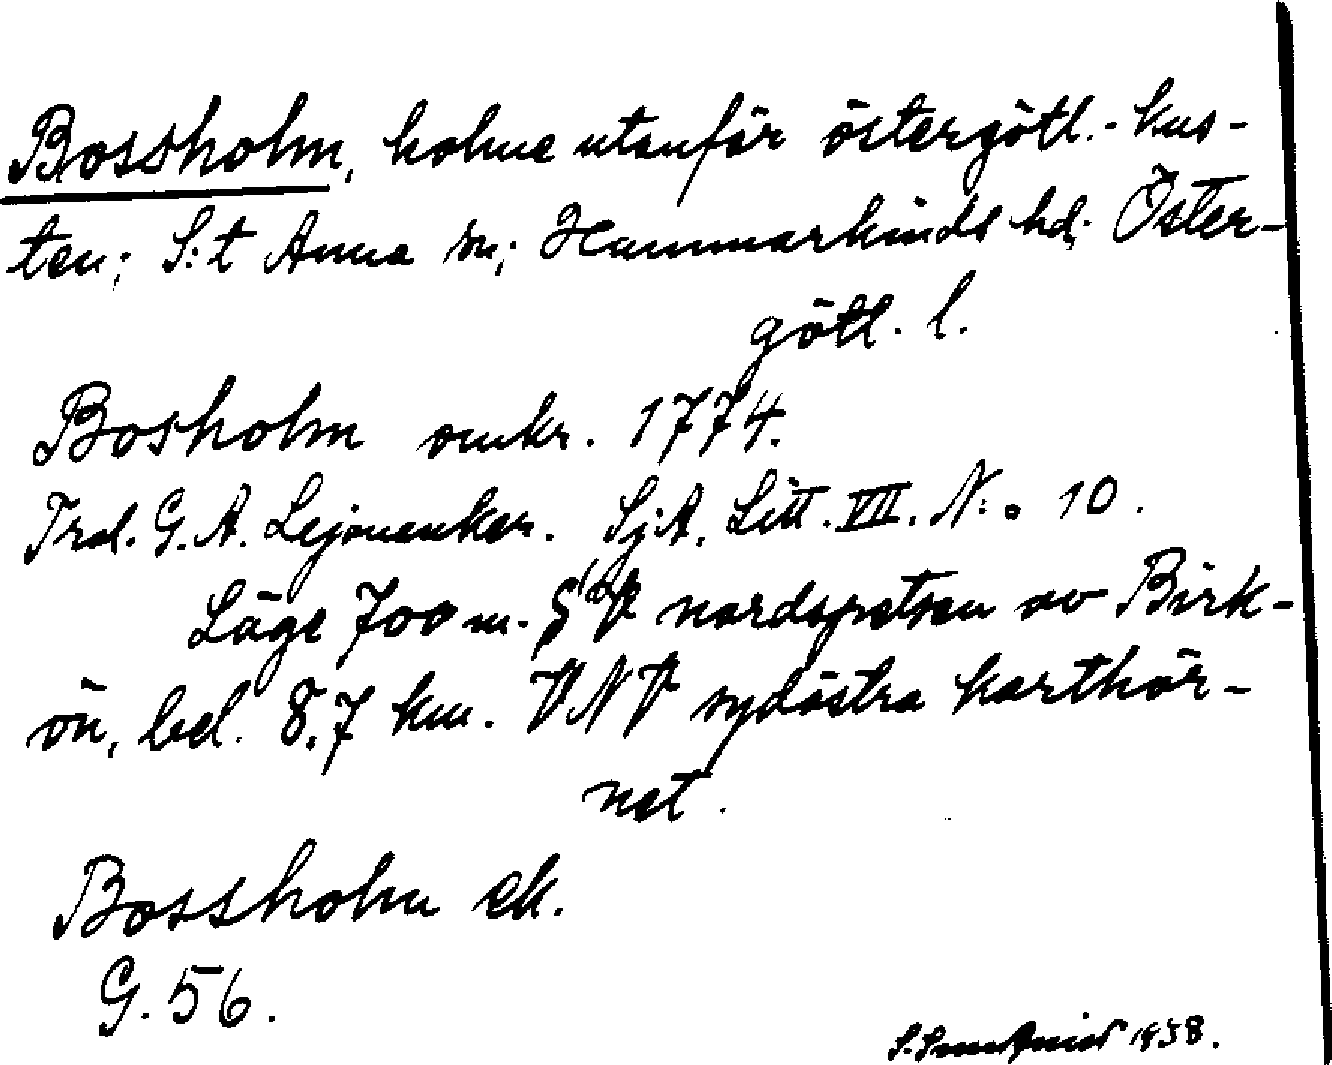 Bossholm, holme utanför östergötl.-kus-
ten; S:t Anna sn; Hammarkinds hd; Öster-
götl. l.
Bosholm omkr. 1774.
Trol. G. A. Lejonanker. Sj.A. Litt. VII. N:o 10.
Läge 700 m. nordspetsen av Birk-
ön, bel. 8,7 km. VNV sydöstra karthör-
net.
Bossholm ek.
G. 56.
1938.